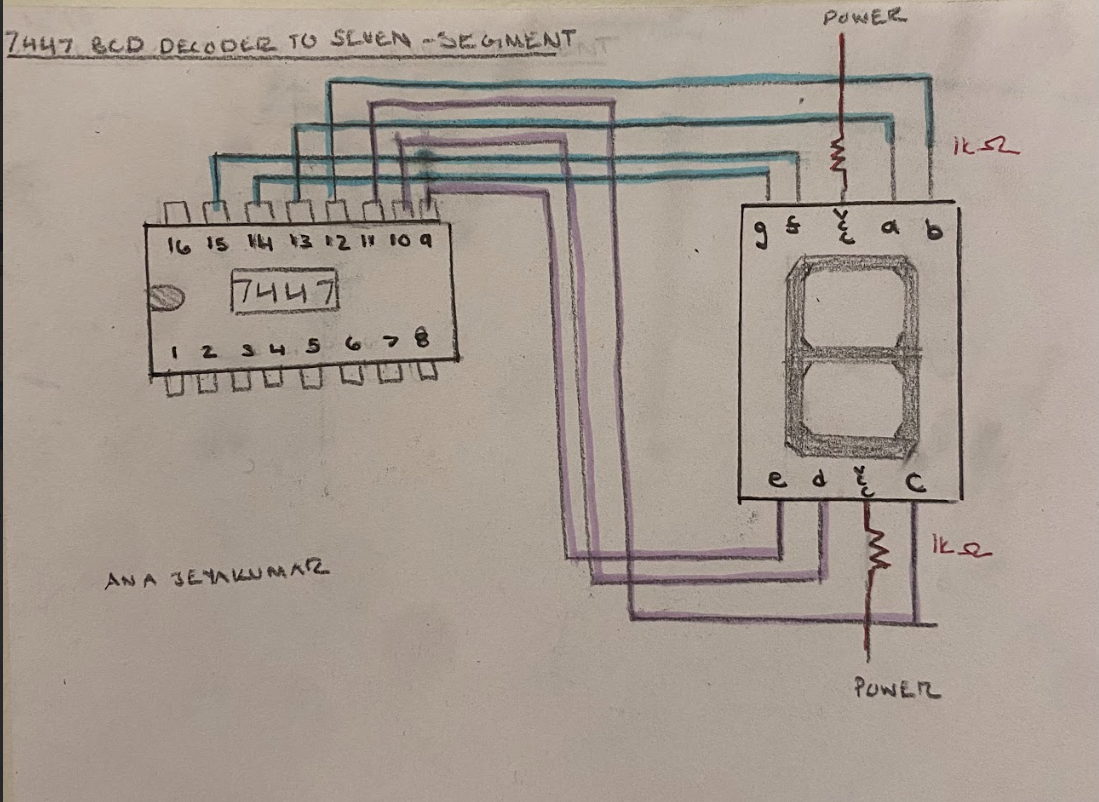 7447 BCD DECODER TO SEVEN-SEGMENT
POWER
1k Ω
16 15 14 13 12 11 10 9
7447
1 2 3 4 5 6 7 8
g f Vcc a b
e d Vcc c
1k Ω
ANA JEYAKUMAR
POWER